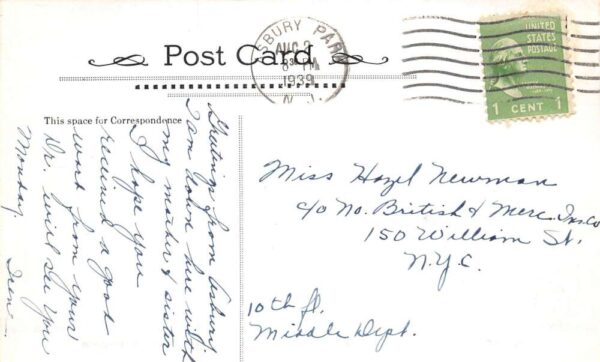 Post Card
ASBURY PARK
AUG 2
8 30 PM
1939
N.J.
UNITED
STATES
POSTAGE
1 CENT 1
This space for Correspondence
Greetings from Asbury.
I am down here with
my mother & sister
I hope you
received a good
word from your
Dr. will see you
Monday
Miss Hazel Newman
c/o No. British & Merc. Ins. Co
150 William St.
N.Y.C.
10th fl.
Middle Dept.